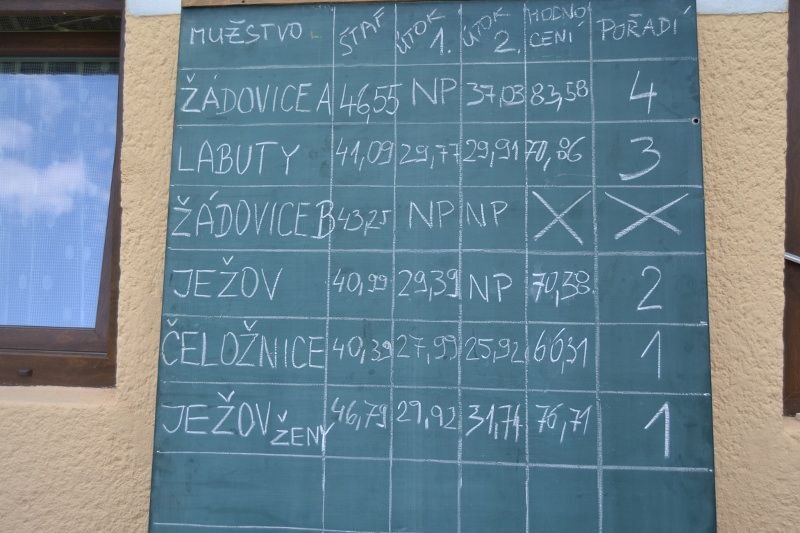 MUŽSTVO ŠTAF ÚTOK 1. ÚTOK 2. HODNOCENÍ POŘADÍ
ŽÁDOVICE A 46,55 NP 37,03 83,58 4
LABUTY 41,09 29,77 29,91 70,86 3
ŽÁDOVICE B 43,25 NP NP X X
JEŽOV 40,99 29,39 NP 70,38 2
ČELOŽNICE 40,39 27,99 25,92 66,31 1
JEŽOV ŽENY 46,79 29,92 31,74 76,71 1